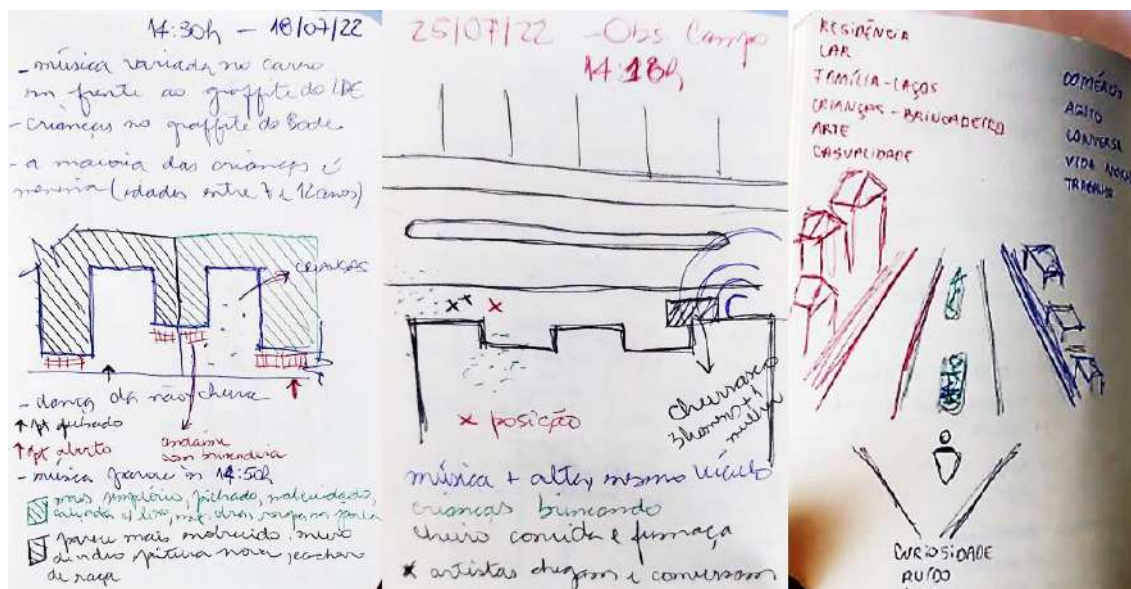 14:30h - 18/07/22
- música variada no carro
em frente ao graffite do LDE
- crianças no graffite do Bode
- a maioria das crianças é
menina (idades entre 7 e 12 anos)
CRIANÇAS
- dança da não chuva
↑ pt fechado
↑ pt aberto
andaime
com brincadeira
- música parou às 14:50h
mais simplório, pichado, mal cuidado,
parece mais enobrecido. muro
de vidro, pintura nova, cachorro
de raça
25/07/22 - Obs. Campo
14:18h
churrasco
3 homens + 1
mulher
x posição
música + alta, mesmo veículo
crianças brincando
cheiro comida e fumaça
x artistas chegam e conversam
RESIDÊNCIA
LAR
FAMÍLIA - LAÇOS
CRIANÇAS - BRINCADEIRA
ARTE
CASUALIDADE
COMÉRCIO
AGITO
CONVERSA
VIDA
TRABALHO
CURIOSIDADE
RUÍDO